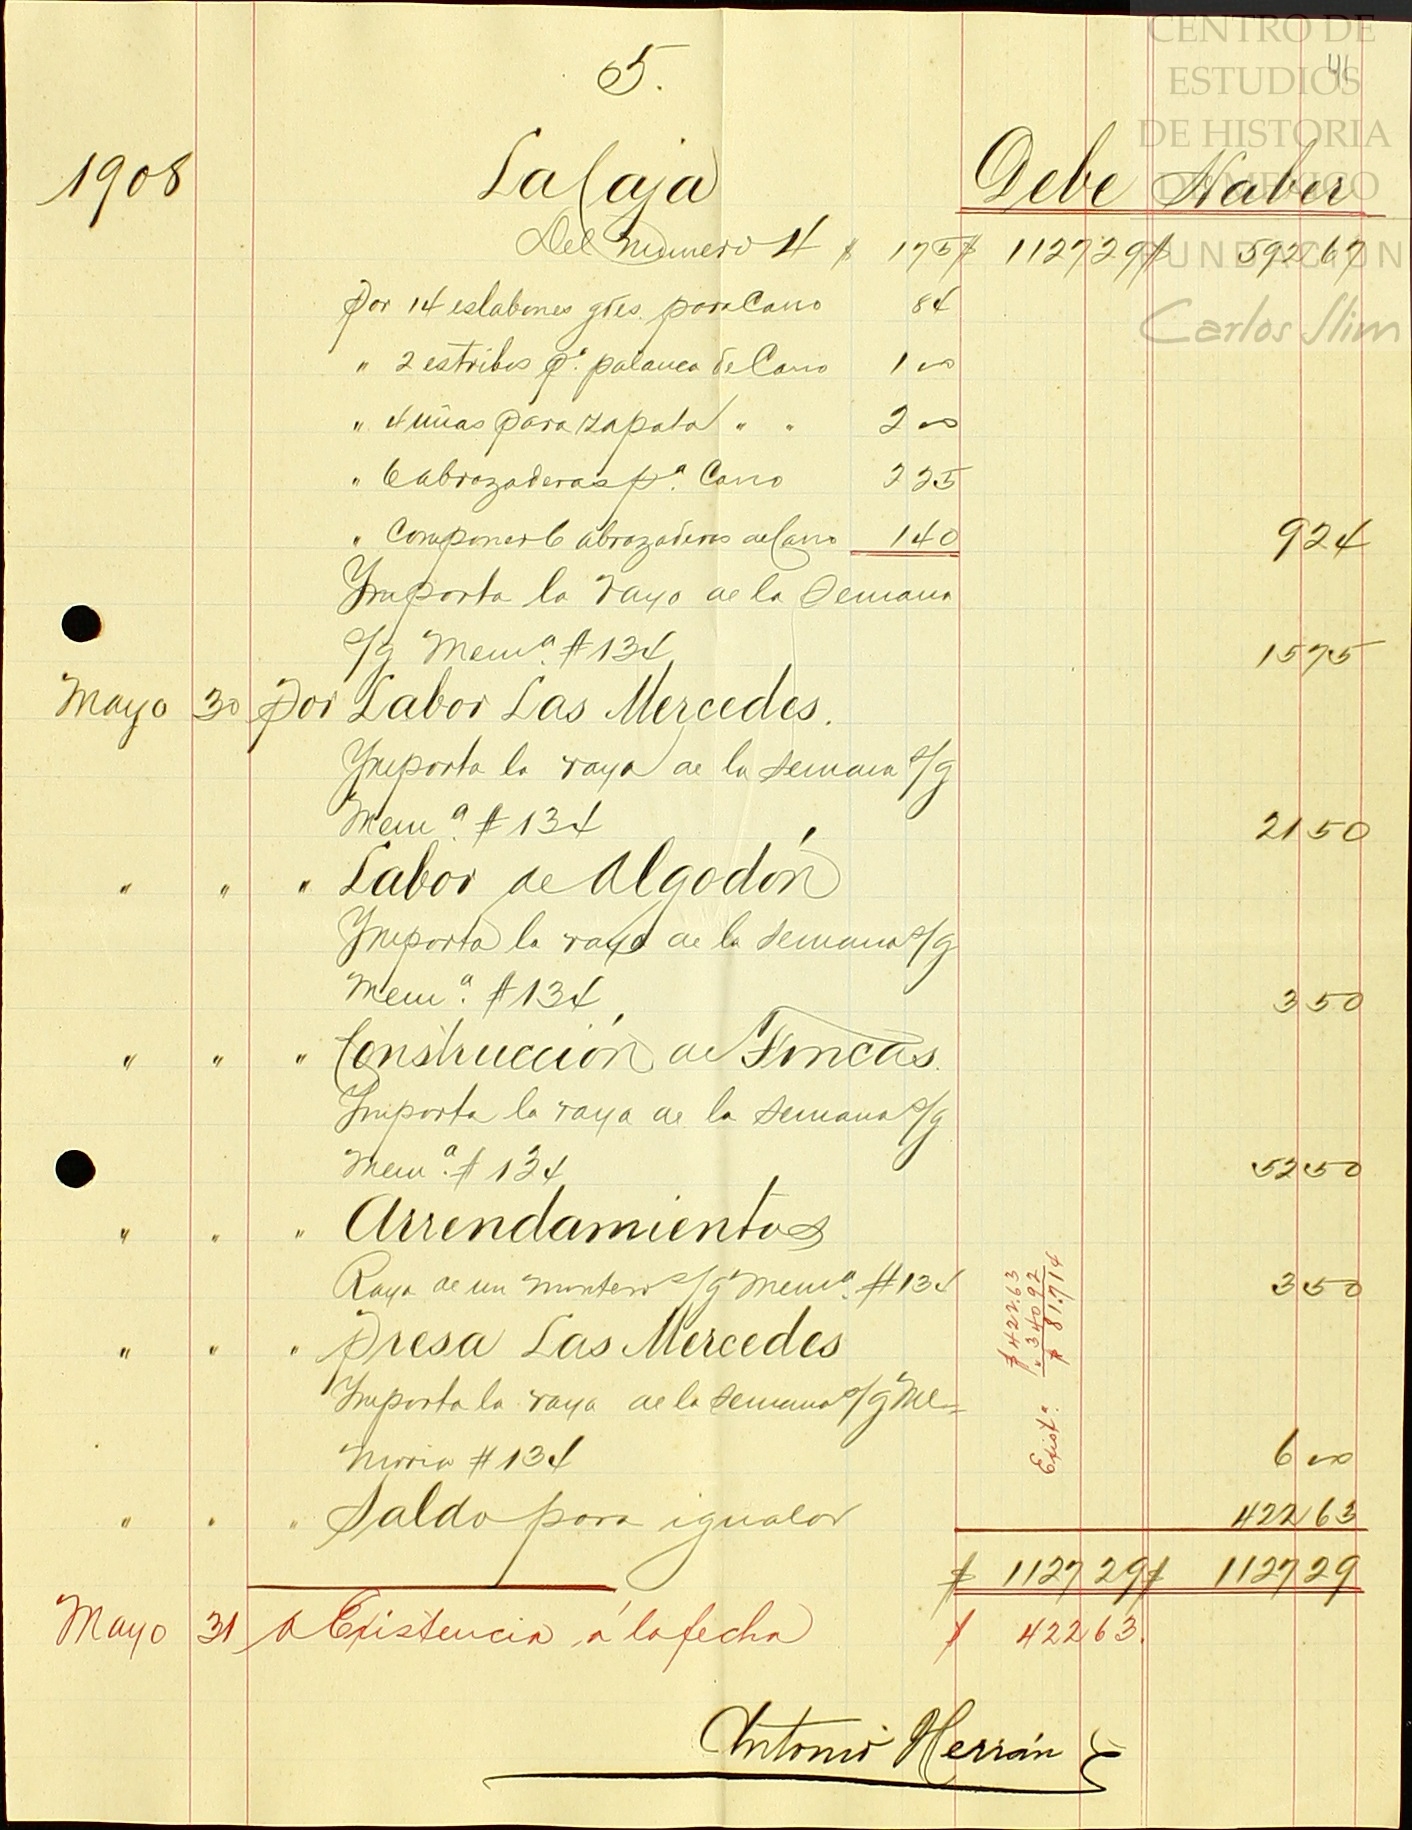 CENTRO DE
ESTUDIOS
DE HISTORIA
DE MÉXICO
FUNDACIÓN
Carlos Slim
41
5.
1908 La Caja Debe Haber
Del numero 4 $ 175 $ 1127 29 $ 592 67
Por 14 eslabones gdes. para Carro 84
" 2 estribos pa. palanca de Carro 1 00
" 4 uñas para zapata " " 2 00
" 6 abrazaderas pa. Carro 2 25
" Componer 6 abrazaderas de Carro 1 40 9 24
Ymporta la raya de la Semana
s/g Mema. #134 15 75
Mayo 30 Por Labor Las Mercedes.
Ymporta la raya de la semana s/g
Mema. #134 21 50
" " " Labor de Algodón
Ymporta la raya de la semana s/g
Mema. #134 3 50
" " " Construcción de Fincas.
Ymporta la raya de la semana s/g
Mema. #134 52 50
" " " Arrendamientos
Raya de un montero s/g Mema. #134 3 50
" " " Presa Las Mercedes
Ymporta la raya de la semana s/g Me=
moria #134 6 00
" " " Saldo para igualar 422 63
$ 1127 29 $ 1127 29
Mayo 31 A Existencia á la fecha $ 422 63.
Exista. $ 422.63
" 340 92
$ 81.71 4
Antonio Herrán